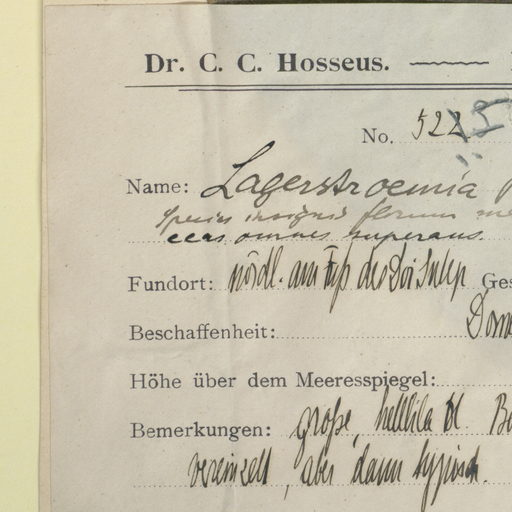 Dr. C. C. Hosseus.
No. 522
Name: Lagerstroemia
species insignis florum
ceas omnes superans.
Fundort: nördl. am Fuß des Doi Sutep Ges
Beschaffenheit: Dorn
Höhe über dem Meeresspiegel:
Bemerkungen: große, helllila Bl. Be
vereinzelt, aber dann typisch.